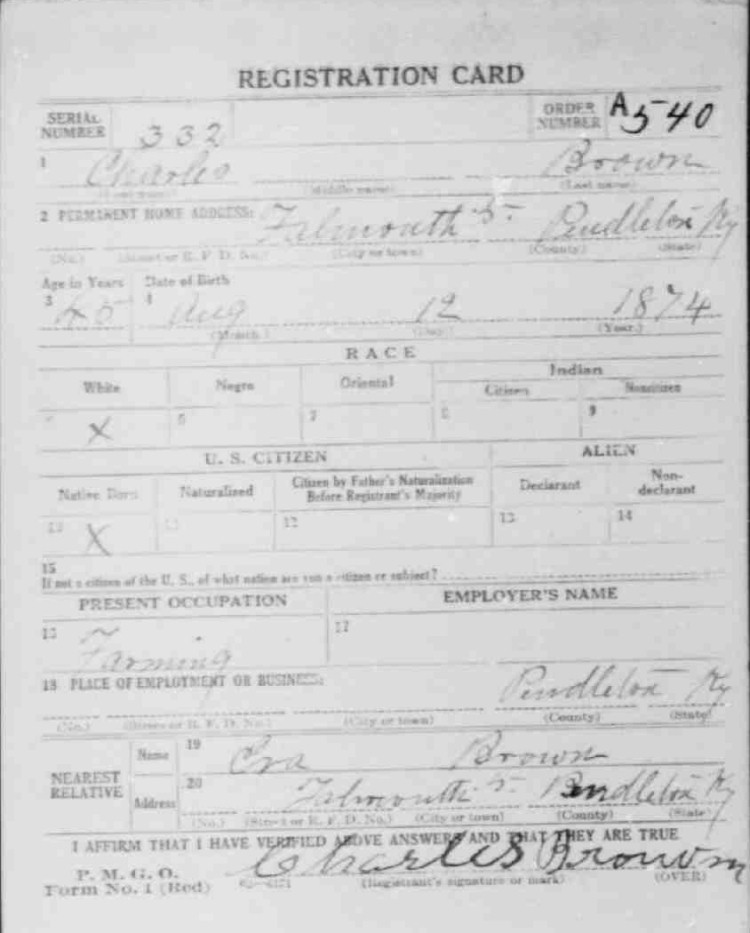 REGISTRATION CARD
SERIAL NUMBER 332 ORDER NUMBER A 540
1 Charles Brown
(First name) (Middle name) (Last name)
2 PERMANENT HOME ADDRESS: Falmouth 5 Pendleton Ky
(No.) (Street or R. F. D. No.) (City or town) (County) (State)
Age in Years Date of Birth
3 45 4 Aug 12 1874
(Month.) (Day.) (Year.)
RACE
White Negro Oriental Indian
Citizen Noncitizen
X 6 7 8 9
U. S. CITIZEN ALIEN
Native Born Naturalized Citizen by Father's Naturalization Before Registrant's Majority Declarant Non-declarant
10 X 11 12 13 14
15
If not a citizen of the U. S., of what nation are you a citizen or subject?
PRESENT OCCUPATION EMPLOYER'S NAME
16 Farming 17
18 PLACE OF EMPLOYMENT OR BUSINESS:
Pendleton Ky
(No.) (Street or R. F. D. No.) (City or town) (County) (State)
NEAREST RELATIVE Name 19 Brown
Address 20 Falmouth 5 Pendleton Ky
(No.) (Street or R. F. D. No.) (City or town) (County) (State)
I AFFIRM THAT I HAVE VERIFIED ABOVE ANSWERS AND THAT THEY ARE TRUE
P. M. G. O.
Form No. 1 (Red) Charles Brown
(Registrant's signature or mark) (OVER)